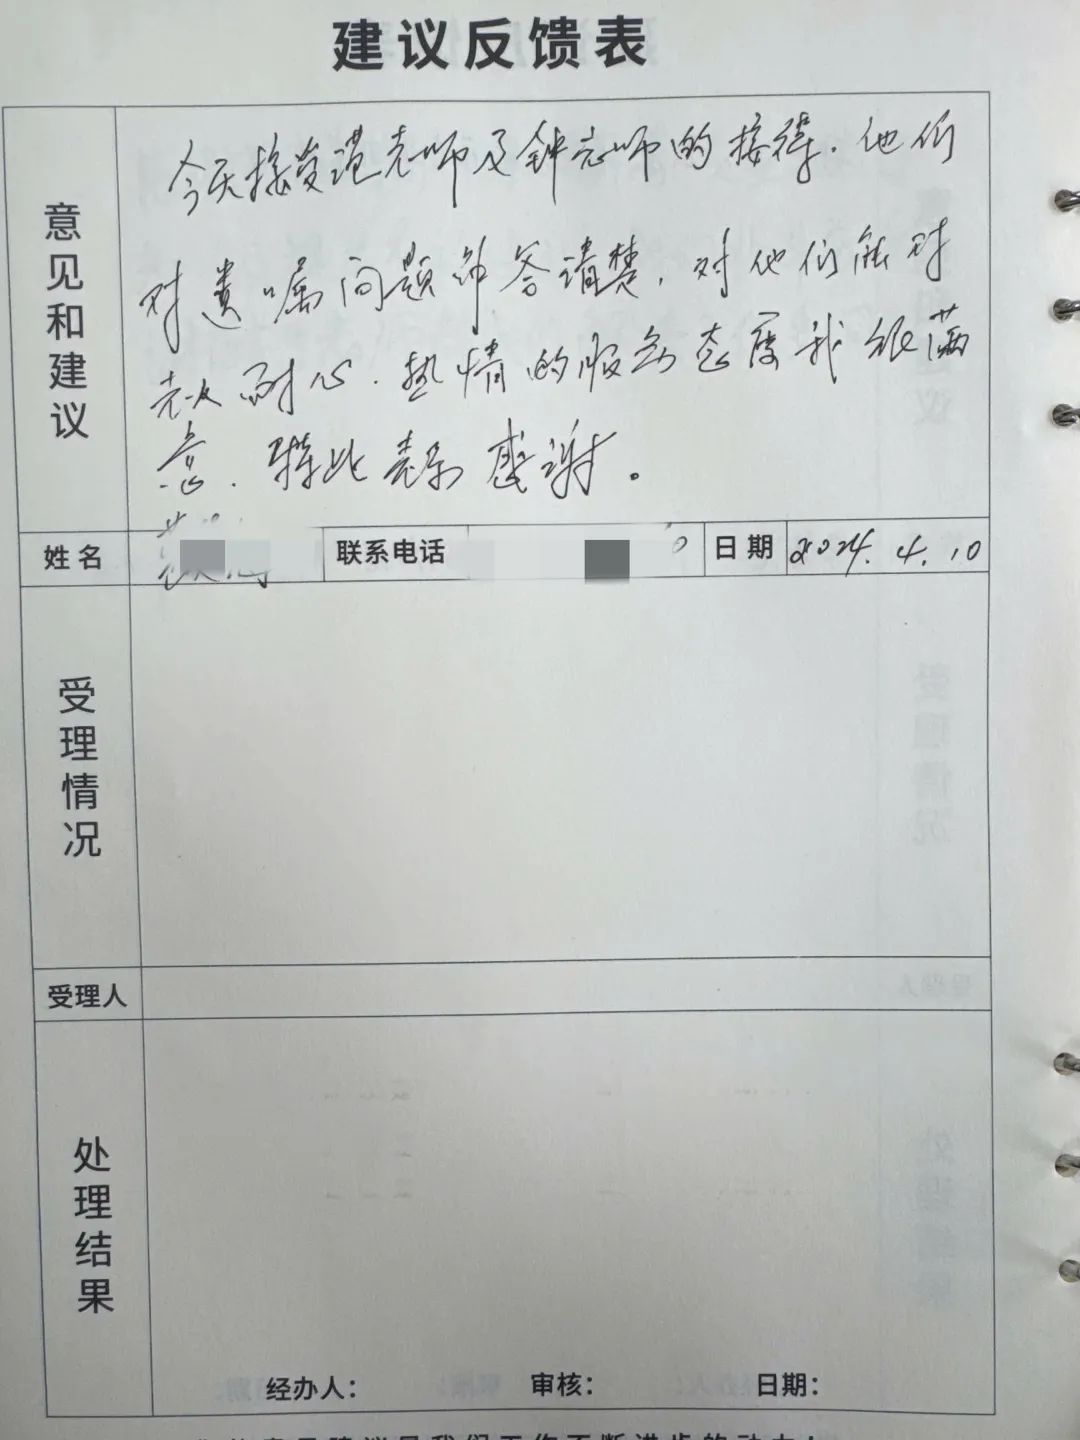 建议反馈表
意见和建议
今天接受潘老师及钟老师的接待.他们
对遗嘱问题解答清楚，对他们能对
耐心.热情的服务态度我很满
意.特此表示感谢。
姓名
联系电话
日期 2024.4.10
受理情况
受理人
处理结果
经办人： 审核： 日期：